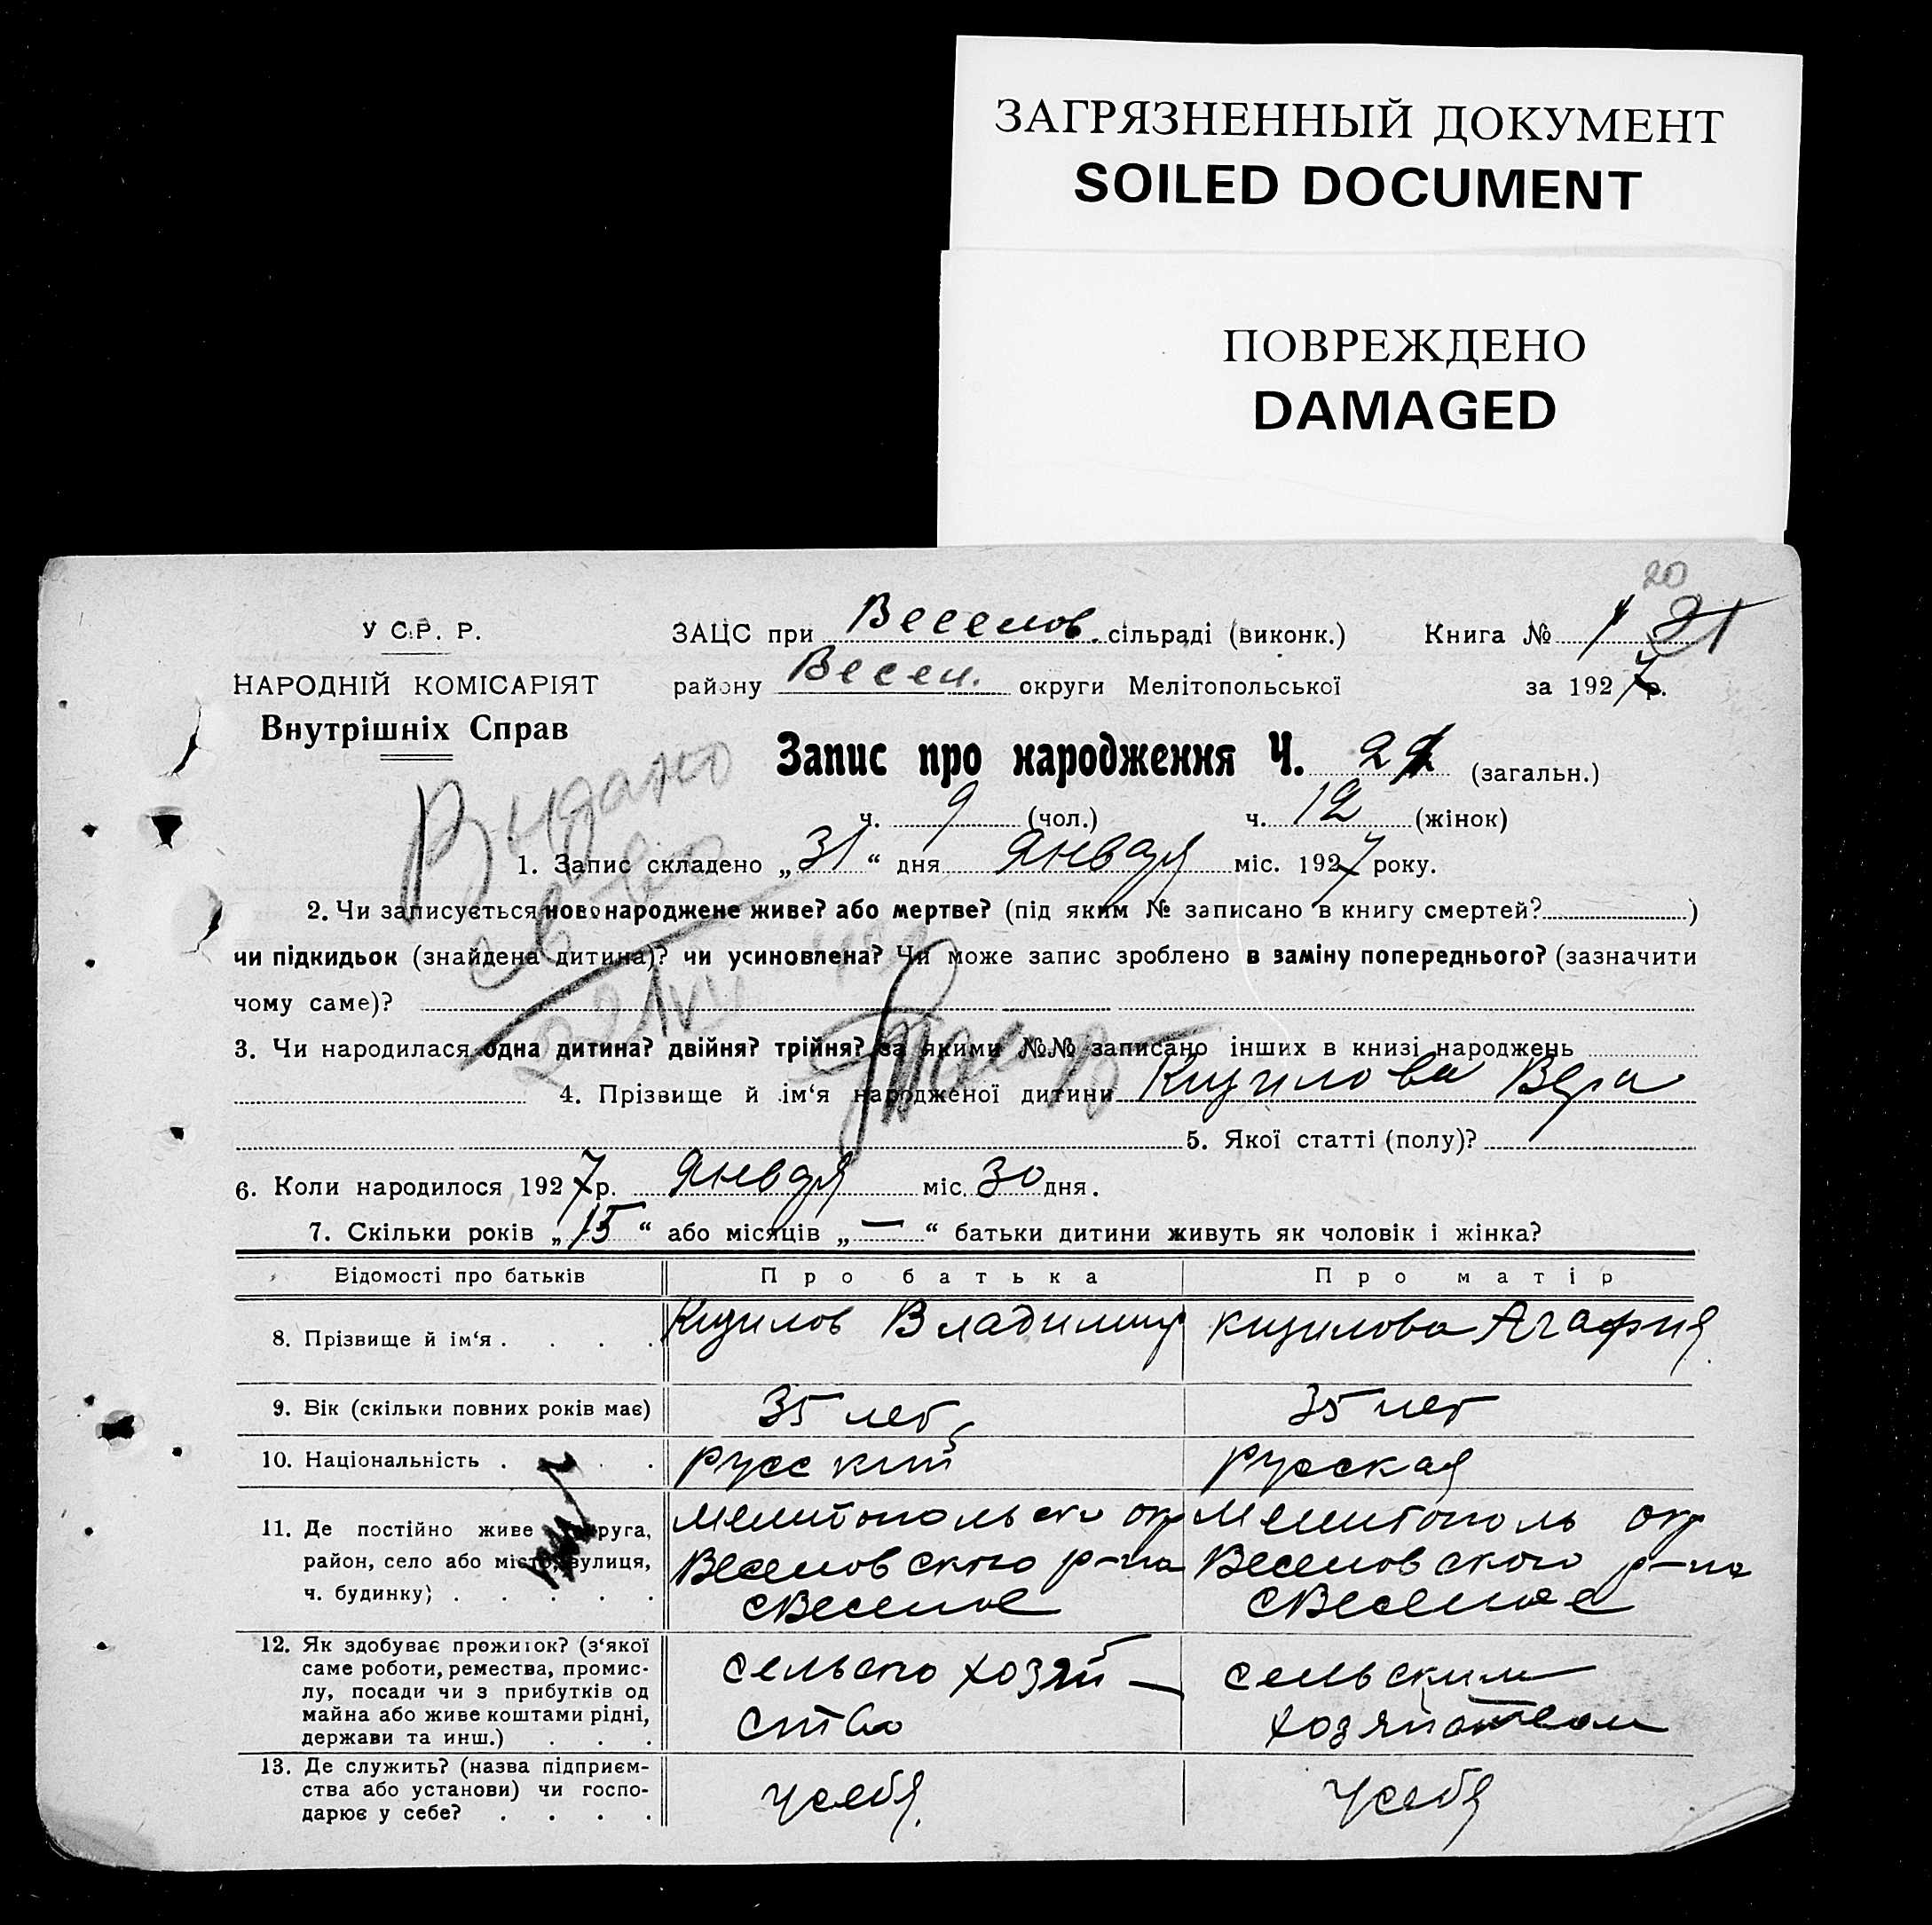 ЗАГРЯЗНЕННЫЙ ДОКУМЕНТ
SOILED DOCUMENT
ПОВРЕЖДЕНО
DAMAGED
20
У С.Р. Р.
ЗАЦС при Веселов. сільраді (виконк.) Книга № 1 21
НАРОДНІЙ КОМІСАРІЯТ
району Весел. округи Мелітопольської за 1927 р.
Внутрішніх Справ
Запис про народження Ч. (загальн.)
ч. 9 (чол.) ч. 12 (жінок)
Видано
1. Запис складено „31“ дня Января міс. 1927 року.
2. Чи записується новонароджене живе? або мертве? (під яким № записано в книгу смертей? )
чи підкидьок (знайдена дитина)? чи усиновлена? Чи може запис зроблено в заміну попереднього? (зазначити
чому саме)?
3. Чи народилася одна дитина? двійня? трійня? за якими №№ записано інших в книзі народжень
4. Прізвище й ім‘я народженої дитини Кизилова Вера
5. Якої статті (полу)?
6. Коли народилося 1927 р. Января міс. 30 дня.
7. Скільки років „15“ або місяців „—“ батьки дитини живуть як чоловік і жінка?
Відомості про батьків Про батька Про матір
8. Прізвище й ім‘я . . . . Кизилов Владимир Кизилова Агафия
9. Вік (скільки повних років має) 35 лет 35 лет
10. Національність . . . . русский русская
11. Де постійно живе округа, Мелитопольско окр Мелитополь окр
район, село або місто, вулиця, Веселовского р-на Веселовского р-на
ч. будинку) . . . . . с Веселое с Веселое
12. Як здобуває прожиток? (з‘якої
саме роботи, ремества, промис- сельско хозяй— сельским
лу, посади чи з прибутків од
майна або живе коштами рідні, ство хозяйством
держави та инш.) . . .
13. Де служить? (назва підприєм-
ства або установи) чи госпо- у себя у себя
дарює у себе? . . . .